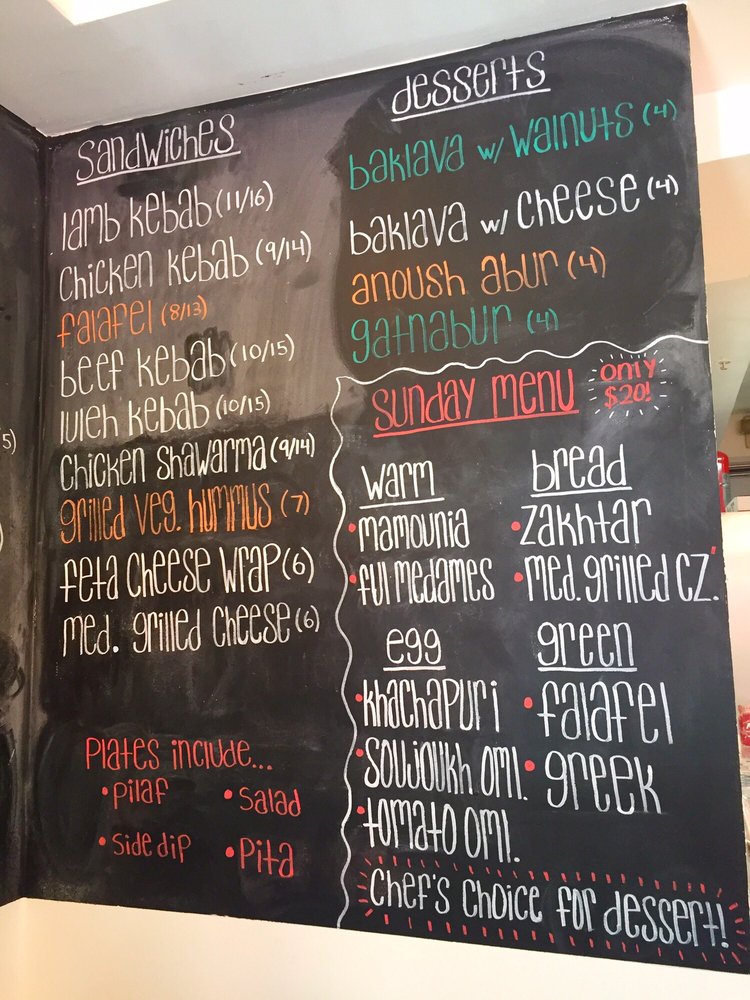 5)
sandwiches
lamb kebab (11/16)
chicken kebab (9/14)
falafel (8/13)
beef kebab (10/15)
luleh kebab (10/15)
chicken shawarma (9/14)
grilled veg. hummus (7)
feta cheese wrap (6)
med. grilled cheese (6)
Plates include...
• Pilaf
• Salad
• Side dip
• Pita
desserts
baklava w/ walnuts (4)
baklava w/ cheese (4)
anoush abur (4)
gatnabur (4)
Sunday menu
only
$20!
warm
• mamounia
• ful medames
bread
• zakhtar
• med. grilled cz.
egg
• khachapuri
• soujoukh oml.
• tomato oml.
green
• falafel
• greek
Chef's choice for dessert!